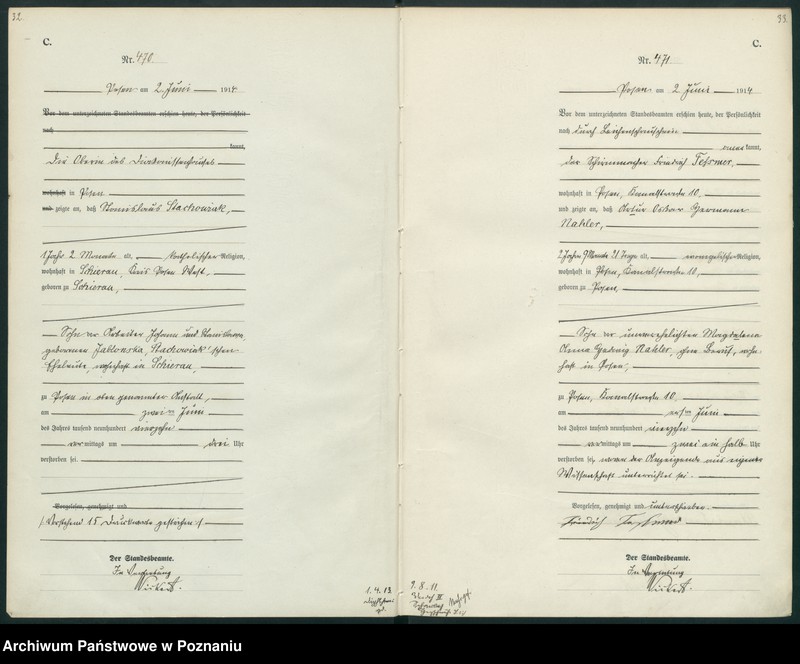 32.
C.
Nr. 470
Posen am 2. Juni 1914
Vor dem unterzeichneten Standesbeamten erschien heute, der Persönlichkeit
nach
kannt,
die Oberin des Diakonissenhauses
wohnhaft in Posen
und zeigte an, daß Stanislaus Stachowiak,
1 Jahr 2 Monate alt, katholischer Religion,
wohnhaft in Schierau, Kreis Posen West,
geboren zu Schierau,
Sohn der Arbeiter Johann und
geborenen Jablonska, Stachowiak'schen
Eheleute, wohnhaft in Schierau,
zu Posen in oben genannter Anstalt,
am zweiten Juni
des Jahres tausend neunhundert vierzehn
vormittags um drei Uhr
verstorben sei.
Vorgelesen, genehmigt und
Vorstehend 15 Druckworte gestrichen
Der Standesbeamte.
In Vertretung
1. 4. 13.
33.
C.
Nr. 471
Posen am 2. Juni 1914
Vor dem unterzeichneten Standesbeamten erschien heute, der Persönlichkeit
nach durch
kannt,
der Schirmmacher Friedrich
wohnhaft in Posen, Kanalstraße 10,
und zeigte an, daß Artur Oskar Hermann
Nahler,
2 Jahre 9 Monate 21 Tage alt, evangelischer Religion,
wohnhaft in Posen, Kanalstraße 10,
geboren zu Posen,
Sohn der unverehelichten Magdalena
Anna Hedwig Nahler, ohne Beruf, wohn-
haft in Posen,
zu Posen, Kanalstraße 10,
am ersten Juni
des Jahres tausend neunhundert vierzehn
vormittags um zwei ein halb Uhr
verstorben sei, wovon der Anzeigende aus eigener
Wissenschaft unterrichtet sei.
Vorgelesen, genehmigt und unterschrieben.
Friedrich
Der Standesbeamte.
In Vertretung
Archiwum Państwowe w Poznaniu